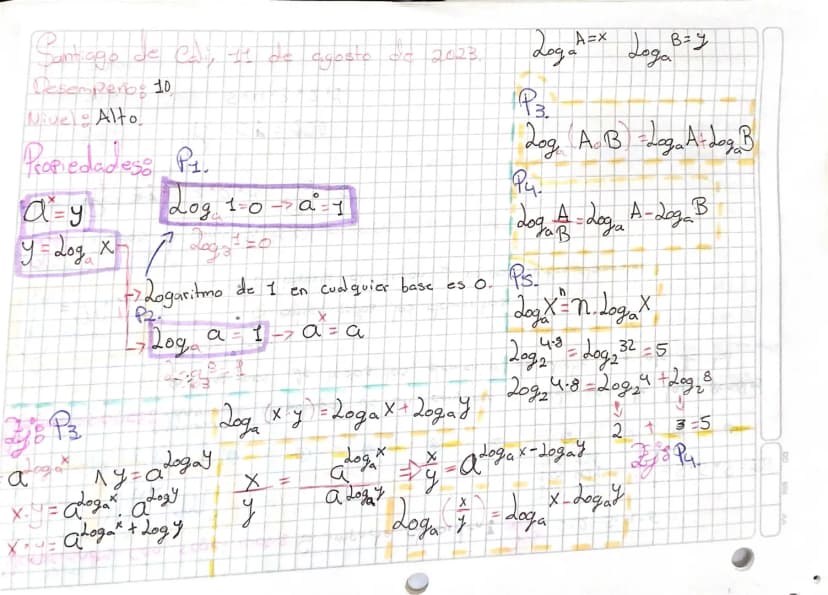 Santiago de Cali, 11 de agosto de 2023.
Desempeño: 10
Nivel: Alto.
Propiedades:
a^x = y
y = Log_a x
P1.
Log_a 1 = 0 → a° = 1
Log_3 1 = 0
→ Logaritmo de 1 en cualquier base es 0.
P2.
→ Log_a a = 1 → a^x = a
Log_a A = x Log_a B = y
P3.
Log_a (A.B) = Log_a A + Log_a B
P4.
Log_a A/B = Log_a A - Log_a B
P5.
Log_a X^n = n. Log_a X
Log_2 4·8 = Log_2 32 = 5
Log_2 4·8 = Log_2 4 + Log_2 8
2 + 3 = 5
Ej: P3
Log_a (x·y) = Log_a x + Log_a y
a^Log_a x ∧ y = a^Log_a y
x·y = a^Log_a x . a^Log y
x·y = a^Log_a x + Log y
Ej: P4.
x/y = a^Log_a x / a^Log_a y ⇒ x/y = a^Log_a x - Log_a y
Log_a (x/y) = Log_a x - Log_a y